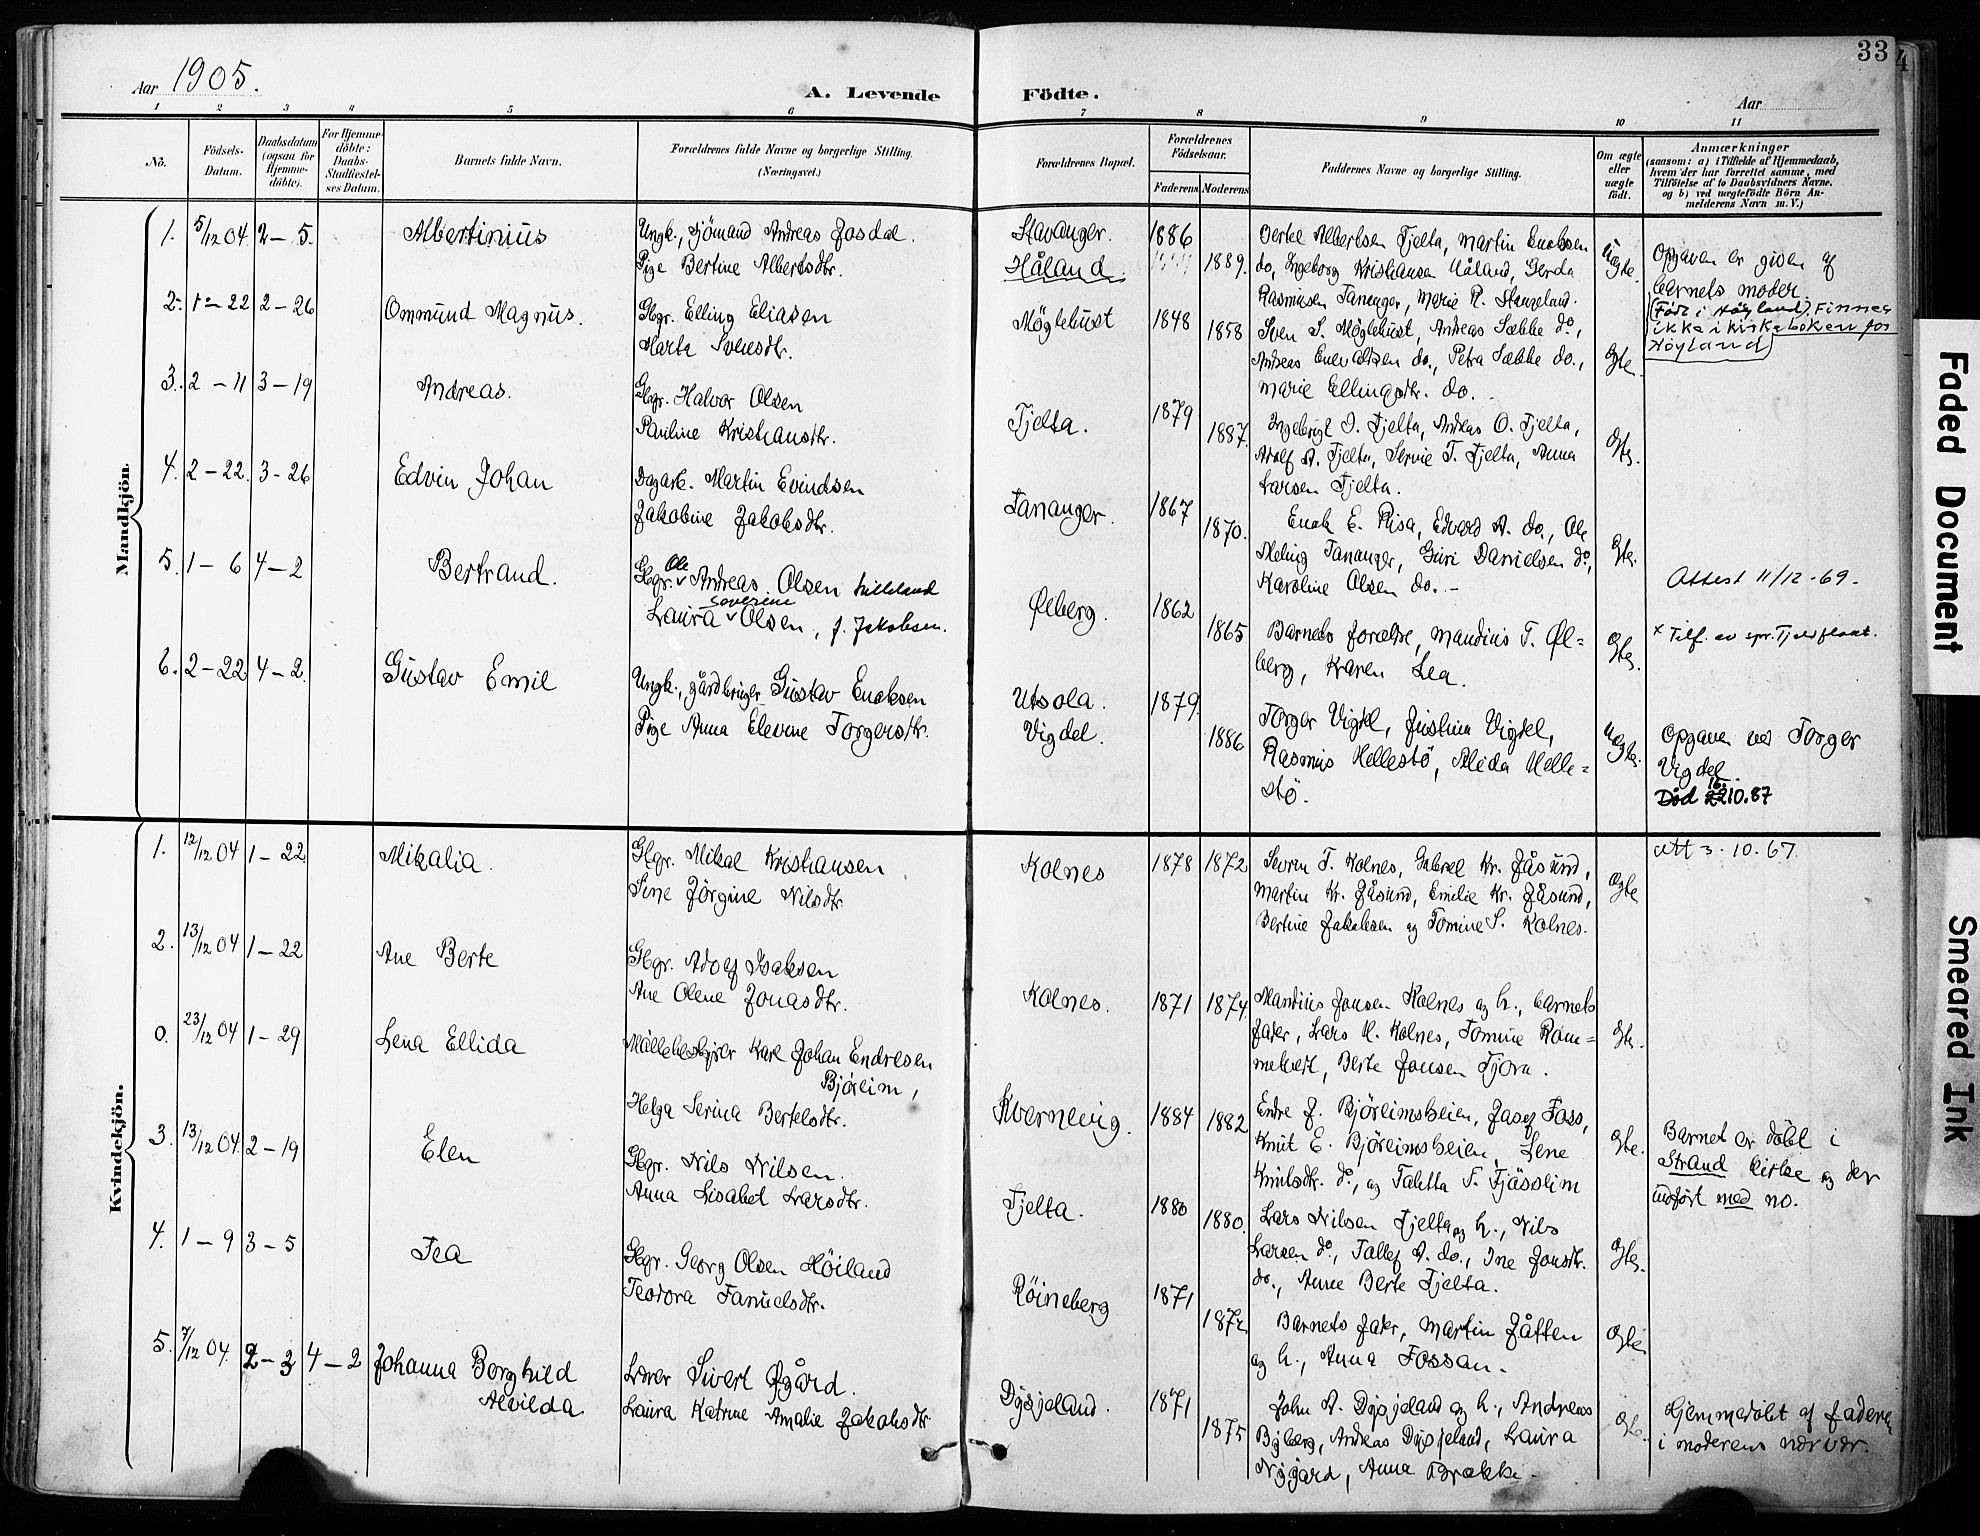 33
4
Aar 1905.
A. Levende Födte.
Aar
1 2 3 4 5 6 7 8 9 10 11
No.
Födsels-Datum.
Daabsdatum (ogsaa for Hjemme-döbte).
For Hjemme-döbte: Daabs-Stadfæstel-ses Datum.
Barnets fulde Navn.
Forældrenes fulde Navne og borgerlige Stilling. (Næringsvei.)
Forældrenes Bopæl.
Forældrenes Födselsaar.
Faderens Moderens
Faddernes Navne og borgerlige Stilling.
Om ægte eller uægte födt.
Anmærkninger
(saasom: a) i Tilfælde af Hjemmedaab,
hvem der har forrettet samme, med
Tilföielse af to Daabsvidners Navne,
og b) ved uægtefödte Börn An-
melderens Navn m. V.)
Mandkjön.
1. 5/12 04. 2 – 5. Albertinius
Ungk., sjömand Andreas Josdal.
Pige Bertine Albertsdtr.
Stavanger.
Håland.
1886 1889.
Oertel Albertsen Tjelta, Martin Enoksen
do, Ingeborg Kristiansen Håland, Gerda
Rasmusen Tananger, Marie R. Stangeland.
Uægte.
Opgaven er given af
barnets moder.
(Født i Høyland). Finnes
ikke i kirkeboken for
Høyland)
2. 1 – 22 2 – 26 Ommund Magnus.
Gbgr. Elling Eliasen
Marta Svensdtr.
Möglehust 1848 1858
Sven S. Möglehust, Andreas Sækbe do,
Andreas Enevaldsen do., Petra Sækbe do.,
Marie Ellingsdtr. do.
Gte.
3. 2 – 11 3 – 19 Andreas.
Gbgr. Halvor Olsen
Pauline Kristiansdtr.
Tjelta. 1879 1887
Ingebrigt O. Tjelta, Andreas O. Tjelta,
Adolf A. Tjelta, Servie T. Tjelta, Anna
Larsen Tjelta.
Gte.
4. 2 – 22. 3 – 26 Edvin Johan
Dagarb. Martin Evindsen
Jakobine Jakobsdtr.
Tananger. 1867 1870.
Enok E. Risa, Edvard A. do., Ole
Meling Tananger, Guri Danielsen do,
Karoline Olsen do. –
Gte.
5. 1 – 6 4 – 2 Bertrand.
Ole
Gbgr. Andreas Olsen Lilleland
Severine
Laura Olsen, f. Jakobsen.
Ølberg. 1862 1865
Barnets forældre, Maudius T. Øl-
berg, Karen Lea.
Gte.
Attest 11/12 - 69.
x Tilf. av spr. Tjeldflaat.
6. 2 – 22 4 – 2. Gustav Emil
Ungk., gårdbruger Gustav Enoksen
Pige Anna Elevine Torgersdtr.
Utsola.
Vigdel.
1879. 1886
Torger Vigdel, Justina Vigdel,
Rasmus Hellestö, Alida Helle-
stö.
Uægte.
Opgaven ved Torger
Vigdel
16.
Död 22 10.87
Kvindekjön.
1. 12/12 04 1 – 22 Mikalia.
Gbgr. Mikal Kristiansen
Sine Jörgine Nilsdtr
Kolnes 1878 1872
Sevrin T. Kolnes, Gabriel Kr. Jåsund,
Martin Kr. Jåsund, Emilie Kr. Jåsund,
Bertine Jakobsen og Tomine S. Kolnes.
Ægte
Att 3. 10. 67.
2. 13/12 04 1 – 22 Ane Berte
Gbgr. Adolf Isaksen
Ane Olene Jonasdtr.
Kolnes. 1871 1874.
Mandius Jonsen Kolnes og h., barnets
fader, Lars H. Kolnes, Tomine Rom-
metveit, Berte Jonsen Tjora.
Gte.
0. 23/12 04 1 – 29 Lena Ellida
Møllebestyrer Karl Johan Endresen
Björeim,
Helga Serina Bertelsdtr.
Kvernevig. 1884 1882
Endre J. Björeimsheien, Josef Foss,
Knut E. Björeimsheien, Lene
Knutsdtr. do, og Taletta T. Fjåsseim
Gte.
Barnet er döbt i
Strand kirke og der
indfört med no.
3. 13/12 04. 2 – 19 Elen
Gbgr. Nils Nilsen.
Anna Lisabet Larsdtr.
Tjelta. 1880 1880.
Lars Nilsen Tjelta og h., Nils
Larsen do, Tallef A. do., Ine Jonsdtr.
do., Anne Berte Tjelta.
Gte.
4. 1 – 9 3 – 5 Tea
Gbgr. Georg Olsen Höiland
Teodora Samuelsdtr.
Röineberg 1871 1872
Barnets fader, Martin Jåtten
og h., Anna Fossan.
Ægte.
5. 7/12 04. 2 – 3 4 – 2 Johanna Borghild
Alvilda
Lærer Sivert Øgård.
Laura Katrine Amalie Jakobsdtr
Dysjeland. 1871 1875
John A. Dysjeland og h., Andreas
Byberg, Andreas Dysjeland, Laura
Nygård, Anna Brække.
Gte.
Hjemmedöbt af faderen
i moderens nærvær.
Faded Document
Smeared Ink